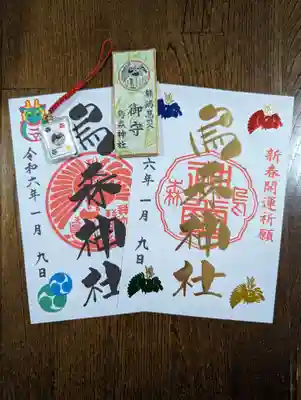 新春開運祈願
烏森神社
六年
一月
九日
烏森神社
令和六年
一月
九日
御守
烏森神社